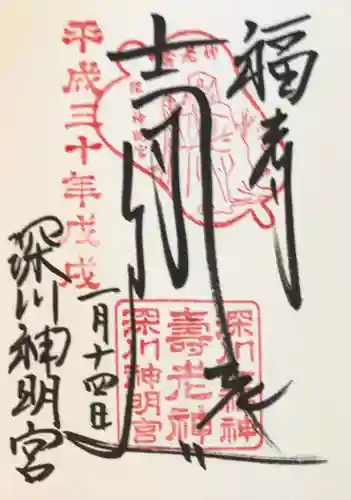 福寿
壽老神
平成三十年戊戌
一月十四日
深川神明宮
深川七福神
壽老神
深川神明宮